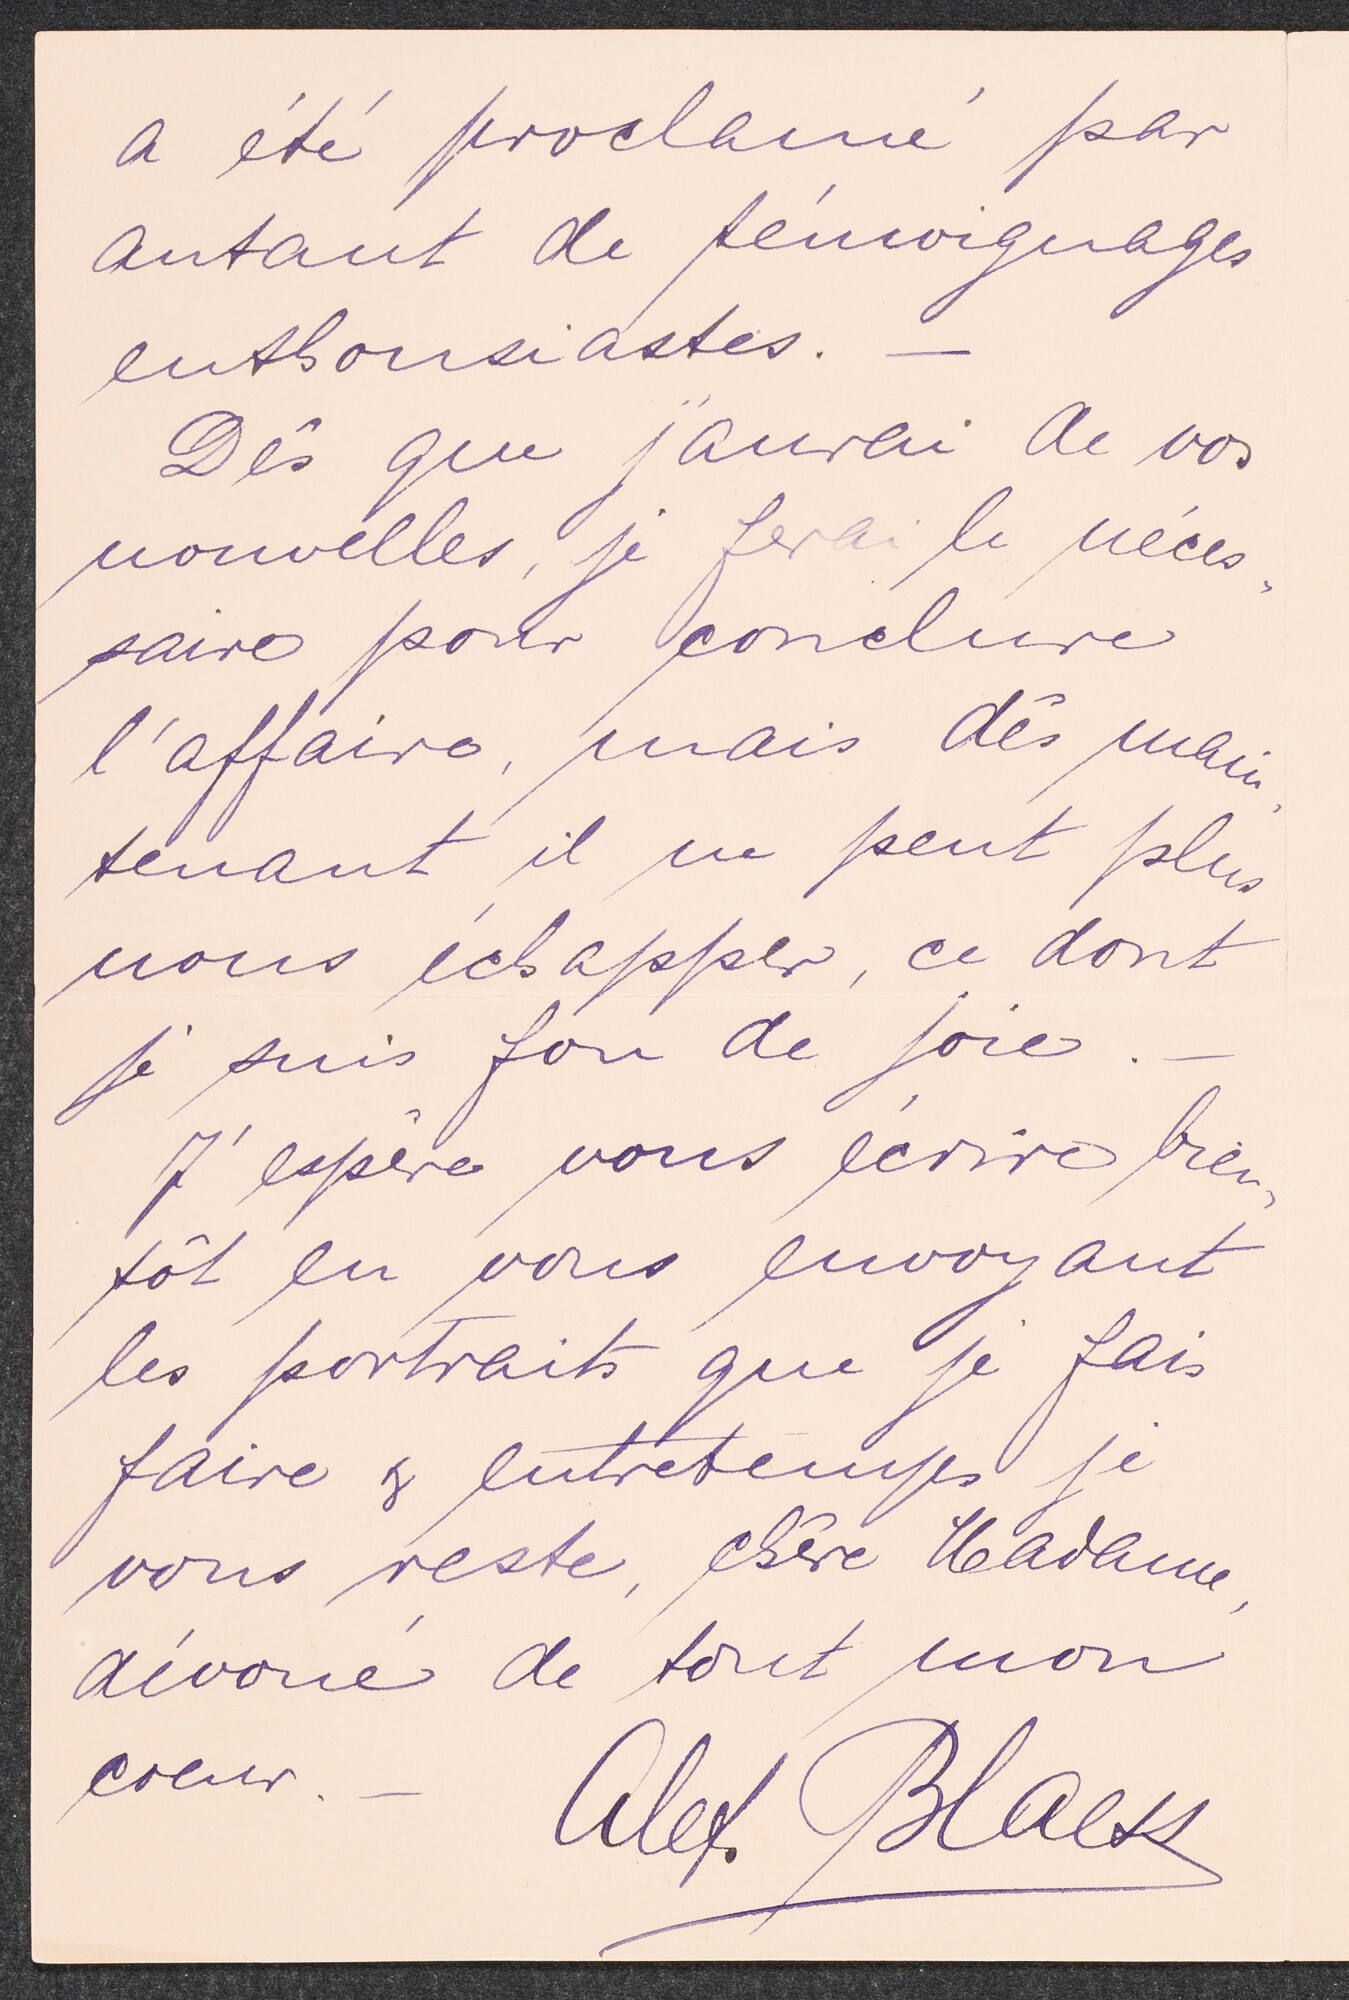 a été proclamé par
autant de témoignages
enthousiastes. —
Dès que j'aurai de vos
nouvelles, je ferai le néces-
saire pour conclure
l'affaire, mais dès main-
tenant il ne peut plus
nous échapper, ce dont
je suis fou de joie. —
J'espère vous écrire bien-
tôt en vous envoyant
les portraits que je fais
faire & entretemps je
vous reste, chère Madame,
dévoué de tout mon
coeur. — Alex. Blaess